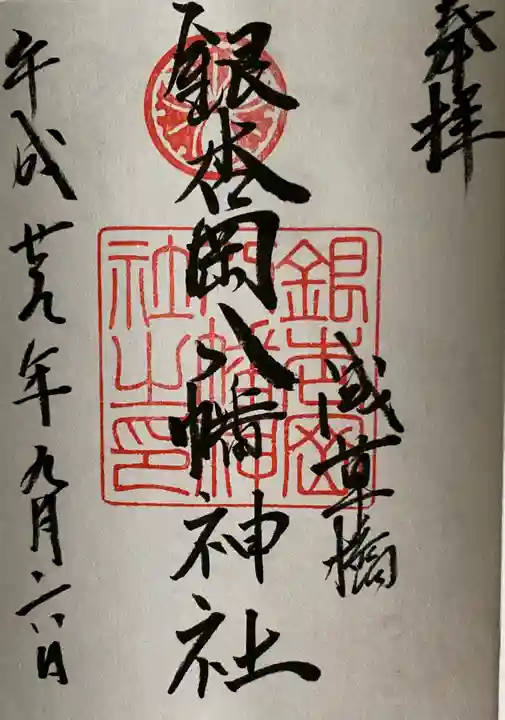 奉拝
浅草橋
銀杏岡八幡神社
銀杏岡
八幡神
社之印
平成廿九年九月二八日